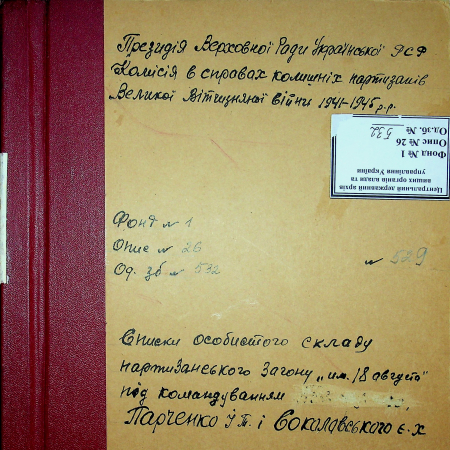 Президія Верховної Ради Української РСР
Комісія в справах колишніх партизанів
Великої Вітчизняної війни 1941-1945 р.р.
Центральний державний архів
вищих органів влади та
управління України
Фонд № 1
Опис № 26
Од.зб. № 532
Фонд № 1
Опис № 26
Од. зб № 532
№ 529
Списки особистого складу
партизанського загону „им. 18 августа"
під командуванням
Парченко У П. і Соколавського Є. Х